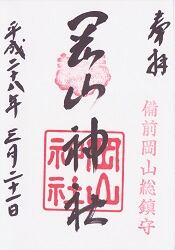 奉拝
備前岡山総鎮守
岡山神社
岡山神社
平成二十八年三月二十一日